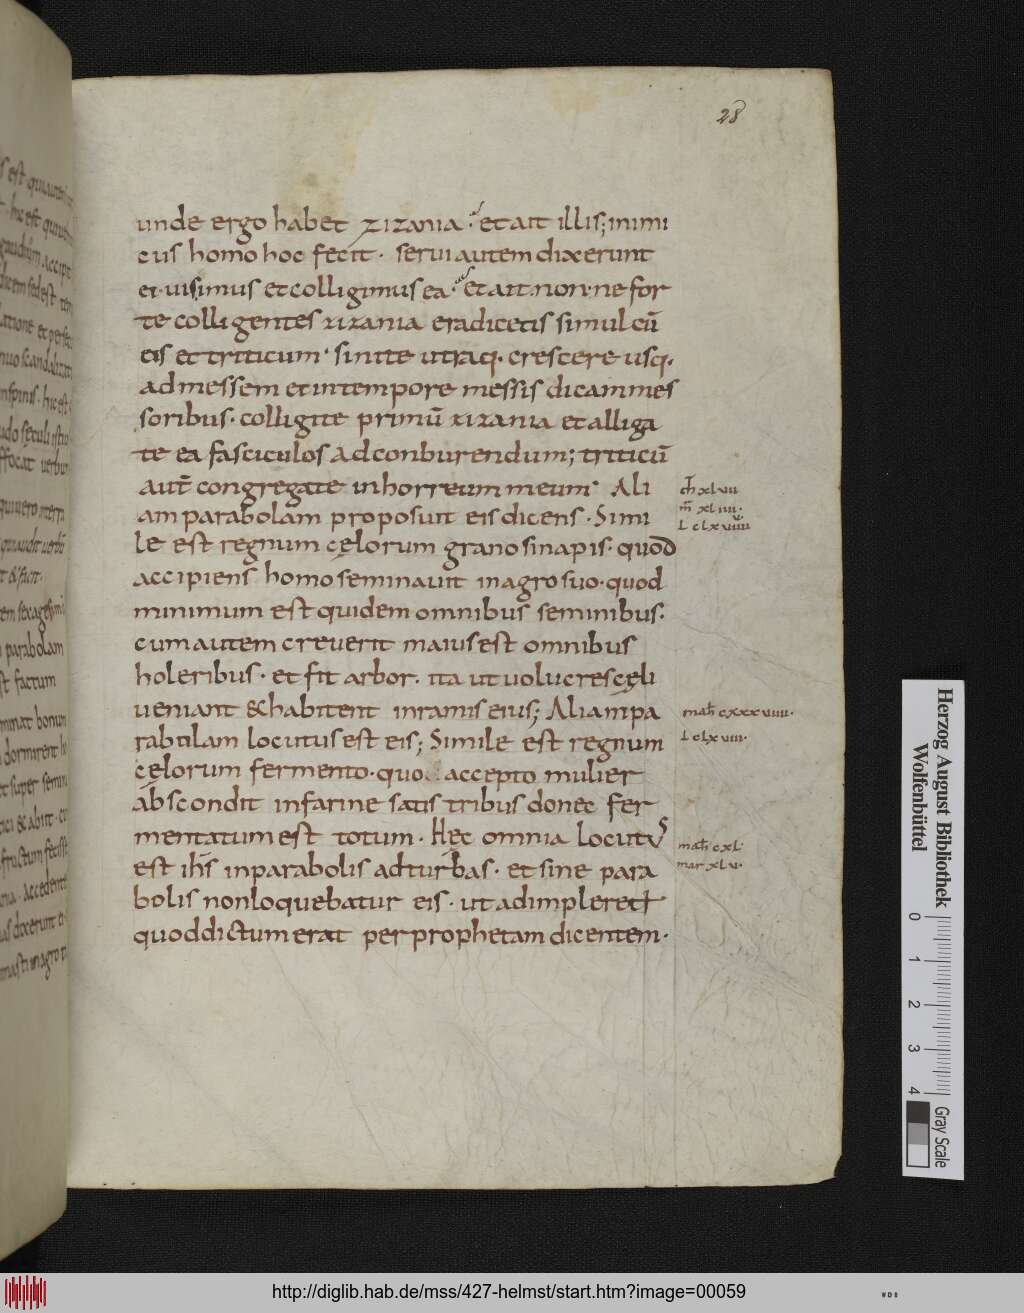 28
unde ergo habet zizania. et ait illis; inimi
cus homo hoc fecit. servi autem dixerunt
ei. vis imus et colligimus ea. et ait. non. ne for
te colligentes zizania eradicetis simul cū
eis et triticum. sinite utraq. crescere usq.
ad messem et in tempore messis dicam mes
soribus. colligite primū zizania et alliga
te ea fasciculos ad conburendum; triticū
aut̄ congregate in horreum meum. Ali
am parabolam proposuit eis dicens. Simi
le est regnum cęlorum grano sinapis. quod
accipiens homo seminavit in agro suo. quod
minimum est quidem omnibus seminibus.
cum autem creverit maius est omnibus
holeribus. et fit arbor. ita ut volucres cęli
veniant & habitent in ramis eius; Aliam pa
rabolam locutus est eis; Simile est regnum
cęlorum fermento. quo accepto mulier
abscondit in farine satis tribus donec fer
mentatum est totum. Hęc omnia locutus
est ih̄s in parabolis ad turbas. et sine para
bolis non loquebatur eis. ut adimpleret
quod dictum erat per prophetam dicentem.
m̄ xl iiii.
mar xl v.
Herzog August Bibliothek
Wolfenbüttel
0 1 2 3 4
Gray Scale
http://diglib.hab.de/mss/427-helmst/start.htm?image=00059